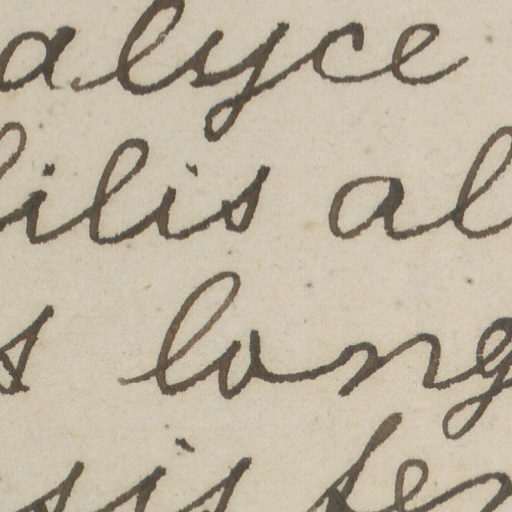 alyce
ilis al
s long
sis fer